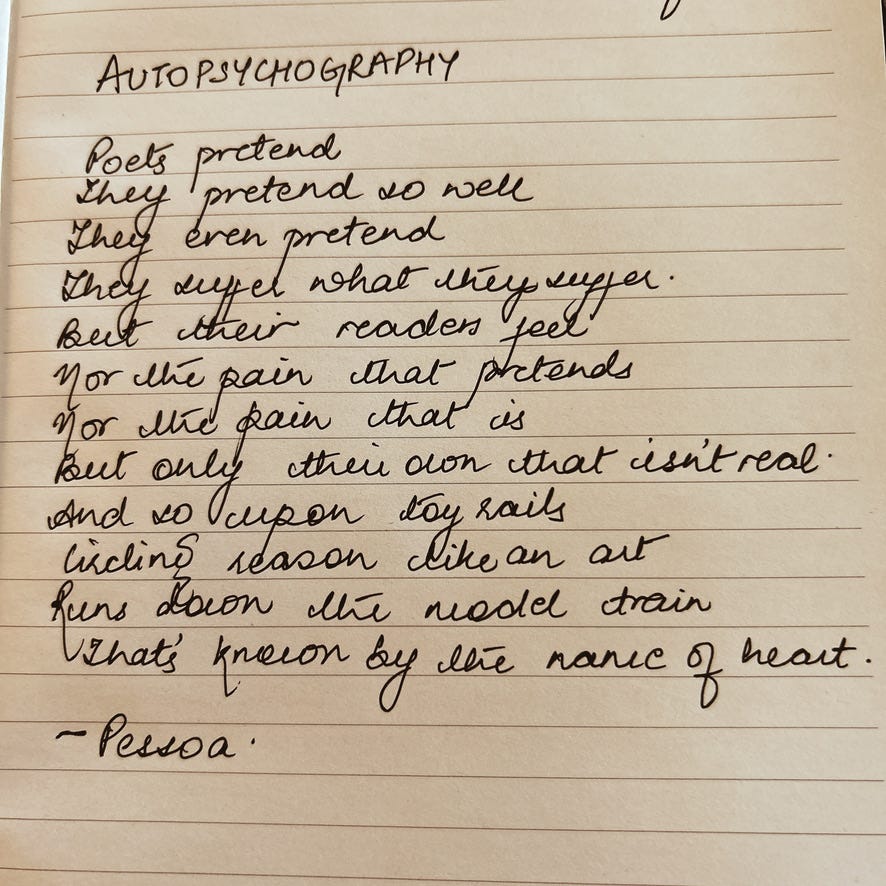 AUTOPSYCHOGRAPHY
Poets pretend
They pretend so well
They even pretend
They suffer what they suffer.
But their readers feel
Nor the pain that pretends
Nor the pain that is
But only their own that isn't real.
And so upon toy rails
Circling reason like an art
Runs down the model train
That's known by the name of heart.
- Pessoa.